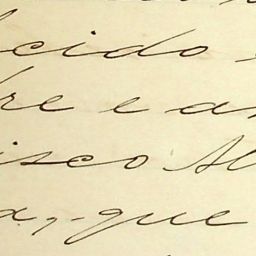 cido
re e a
isco Al
a, que